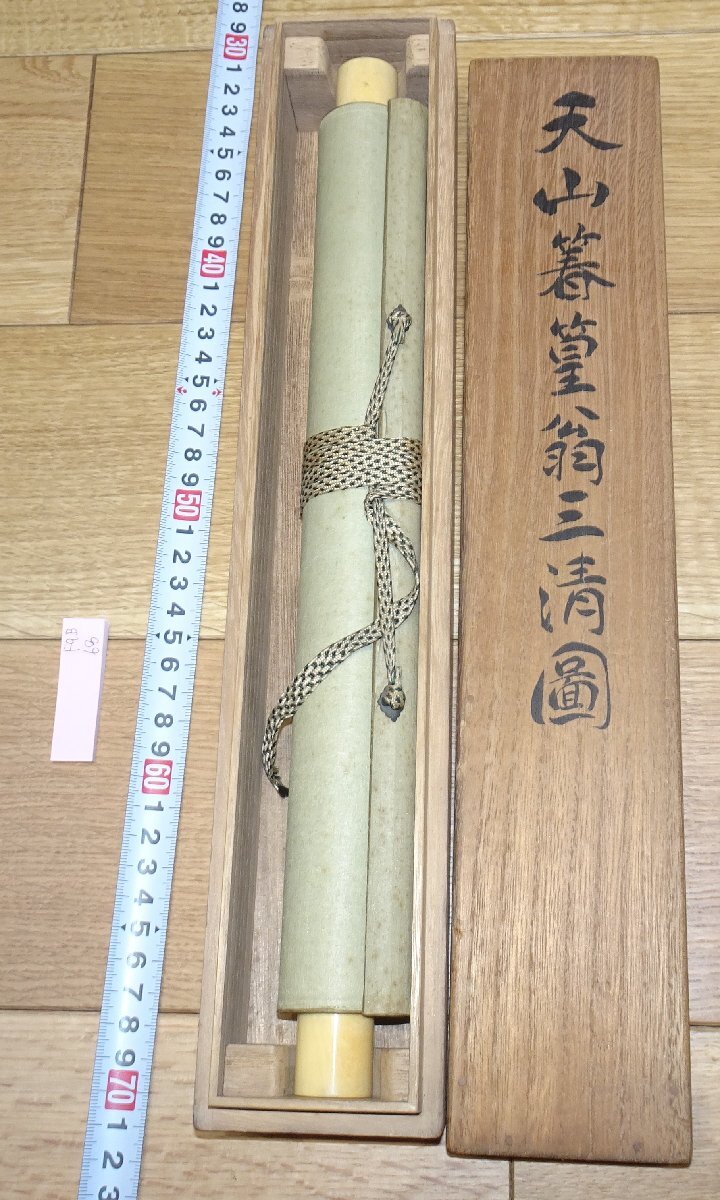 天山篝篁翁三清圖
8
9
30
1
2
3
4
5
6
7
8
9
40
1
2
3
4
5
6
7
8
9
50
1
2
3
4
5
6
7
8
9
60
1
2
3
4
5
6
7
8
9
70
1
2
3